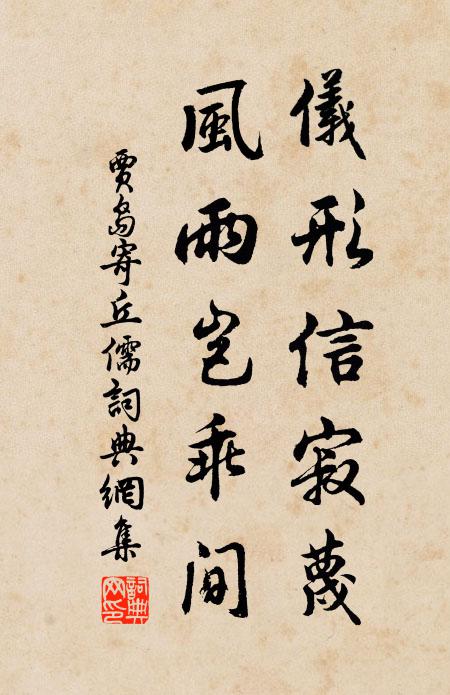 儀形信寂蔑
風雨豈乖間
賈島寄丘儒詞典網集
詞典网印